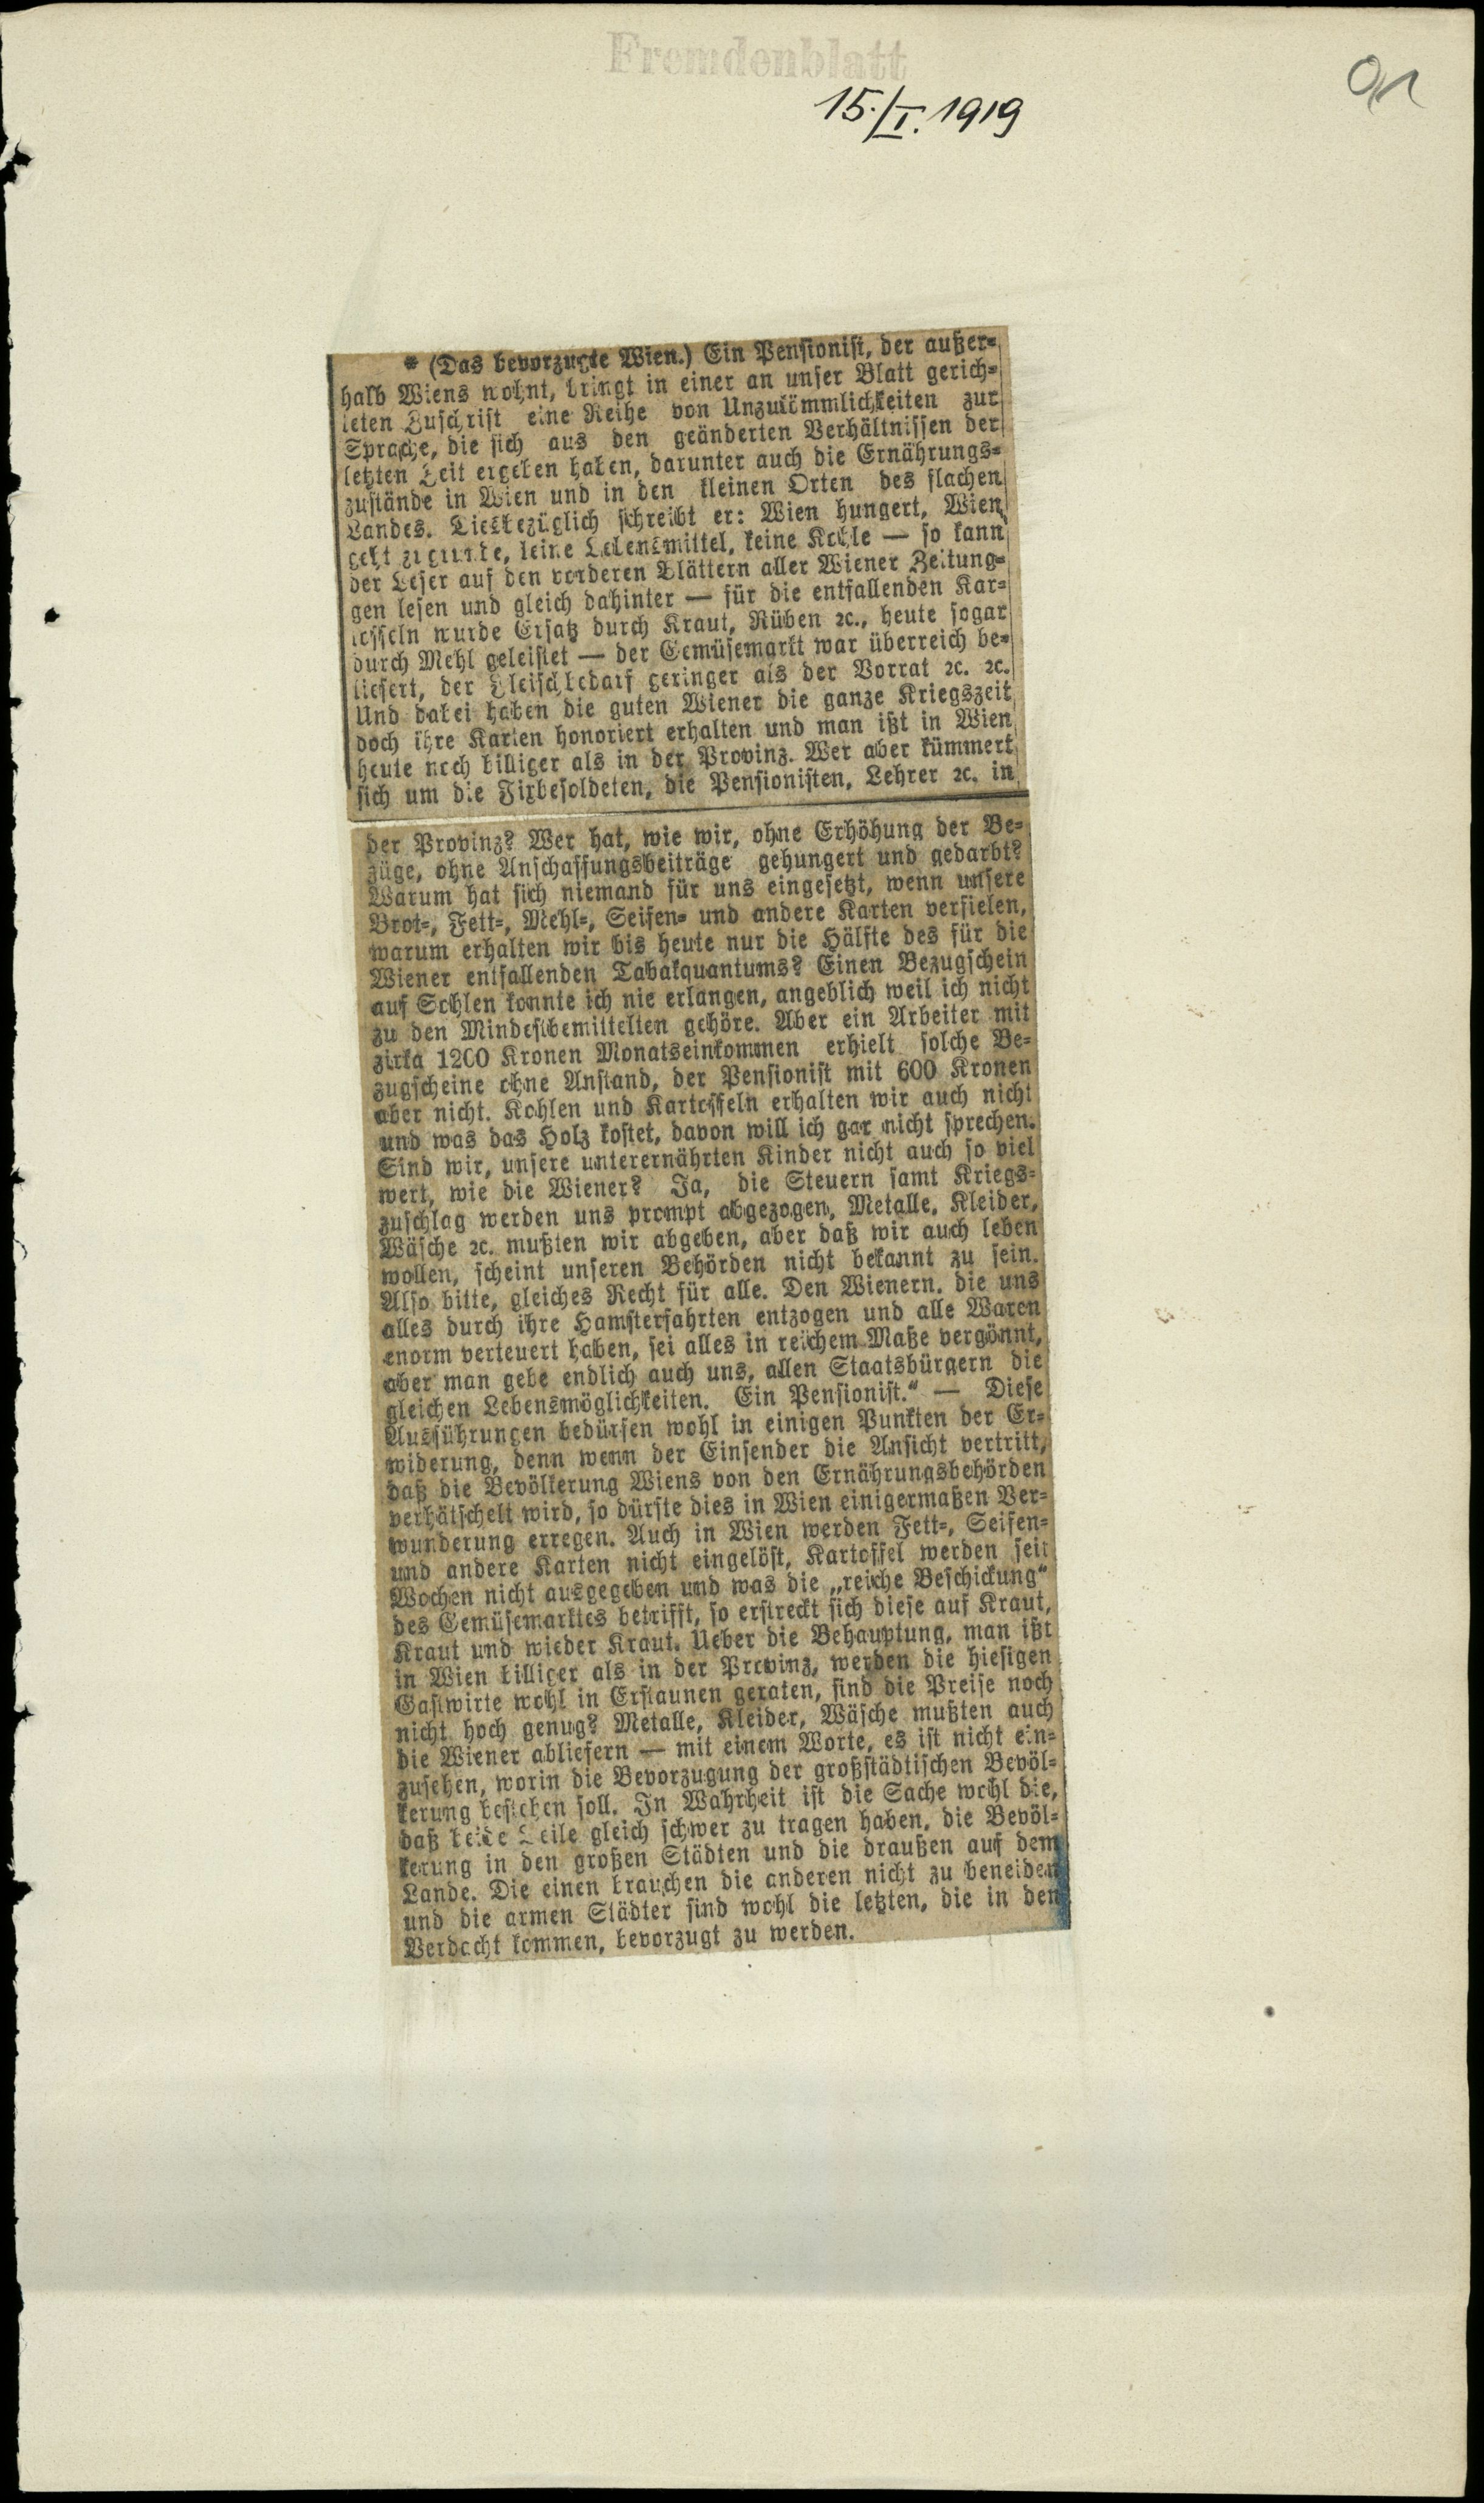 Fremdenblatt
15./I. 1919
* (Das bevorzugte Wien.) Ein Pensionist, der außer-
halb Wiens wohnt, bringt in einer an unser Blatt gerich-
teten Zuschrift eine Reihe von Unzukömmlichkeiten zur
Sprache, die sich aus den geänderten Verhältnissen der
letzten Zeit ergeben haben, darunter auch die Ernährungs-
zustände in Wien und in den kleinen Orten des flachen
Landes. Diesbezüglich schreibt er: Wien hungert, Wien
geht zugrunde, keine Lebensmittel, keine Kohle — so kann
der Leser auf den vorderen Blättern aller Wiener Zeitung-
gen lesen und gleich dahinter — für die entfallenden Kar-
toffeln wurde Ersatz durch Kraut, Rüben ꝛc., heute sogar
durch Mehl geleistet — der Gemüsemarkt war überreich be-
liefert, der Fleischbedarf geringer als der Vorrat ꝛc. ꝛc.
Und dabei haben die guten Wiener die ganze Kriegszeit
doch ihre Karten honoriert erhalten und man ißt in Wien
heute noch billiger als in der Provinz. Wer aber kümmert
sich um die Fixbesoldeten, die Pensionisten, Lehrer ꝛc. in
der Provinz? Wer hat, wie wir, ohne Erhöhung der Be-
züge, ohne Anschaffungsbeiträge gehungert und gedarbt?
Warum hat sich niemand für uns eingesetzt, wenn unsere
Brot-, Fett-, Mehl-, Seifen- und andere Karten verfielen,
warum erhalten wir bis heute nur die Hälfte des für die
Wiener entfallenden Tabakquantums? Einen Bezugschein
auf Sohlen konnte ich nie erlangen, angeblich weil ich nicht
zu den Mindestbemittelten gehöre. Aber ein Arbeiter mit
zirka 1200 Kronen Monatseinkommen erhielt solche Be-
zugscheine ohne Anstand, der Pensionist mit 600 Kronen
aber nicht. Kohlen und Kartoffeln erhalten wir auch nicht
und was das Holz kostet, davon will ich gar nicht sprechen.
Sind wir, unsere unterernährten Kinder nicht auch so viel
wert, wie die Wiener? Ja, die Steuern samt Kriegs-
zuschlag werden uns prompt abgezogen, Metalle, Kleider,
Wäsche ꝛc. mußten wir abgeben, aber daß wir auch leben
wollen, scheint unseren Behörden nicht bekannt zu sein.
Also bitte, gleiches Recht für alle. Den Wienern. die uns
alles durch ihre Hamsterfahrten entzogen und alle Waren
enorm verteuert haben, sei alles in reichem Maße vergönnt,
aber man gebe endlich auch uns, allen Staatsbürgern die
gleichen Lebensmöglichkeiten. Ein Pensionist.“ — Diese
Ausführungen bedürfen wohl in einigen Punkten der Er-
widerung, denn wenn der Einsender die Ansicht vertritt,
daß die Bevölkerung Wiens von den Ernährungsbehörden
verhätschelt wird, so dürfte dies in Wien einigermaßen Ver-
wunderung erregen. Auch in Wien werden Fett-, Seifen-
und andere Karten nicht eingelöst, Kartoffel werden seit
Wochen nicht ausgegeben und was die „reiche Beschickung“
des Gemüsemarktes betrifft, so erstreckt sich diese auf Kraut,
Kraut und wieder Kraut. Ueber die Behauptung, man ißt
in Wien billiger als in der Provinz, werden die hiesigen
Gastwirte wohl in Erstaunen geraten, sind die Preise noch
nicht hoch genug? Metalle, Kleider, Wäsche mußten auch
die Wiener abliefern — mit einem Worte, es ist nicht ein-
zusehen, worin die Bevorzugung der großstädtischen Bevöl-
kerung bestehen soll. In Wahrheit ist die Sache wohl die,
daß beide Teile gleich schwer zu tragen haben, die Bevöl-
kerung in den großen Städten und die draußen auf dem
Lande. Die einen brauchen die anderen nicht zu beneiden
und die armen Städter sind wohl die letzten, die in den
Verdacht kommen, bevorzugt zu werden.